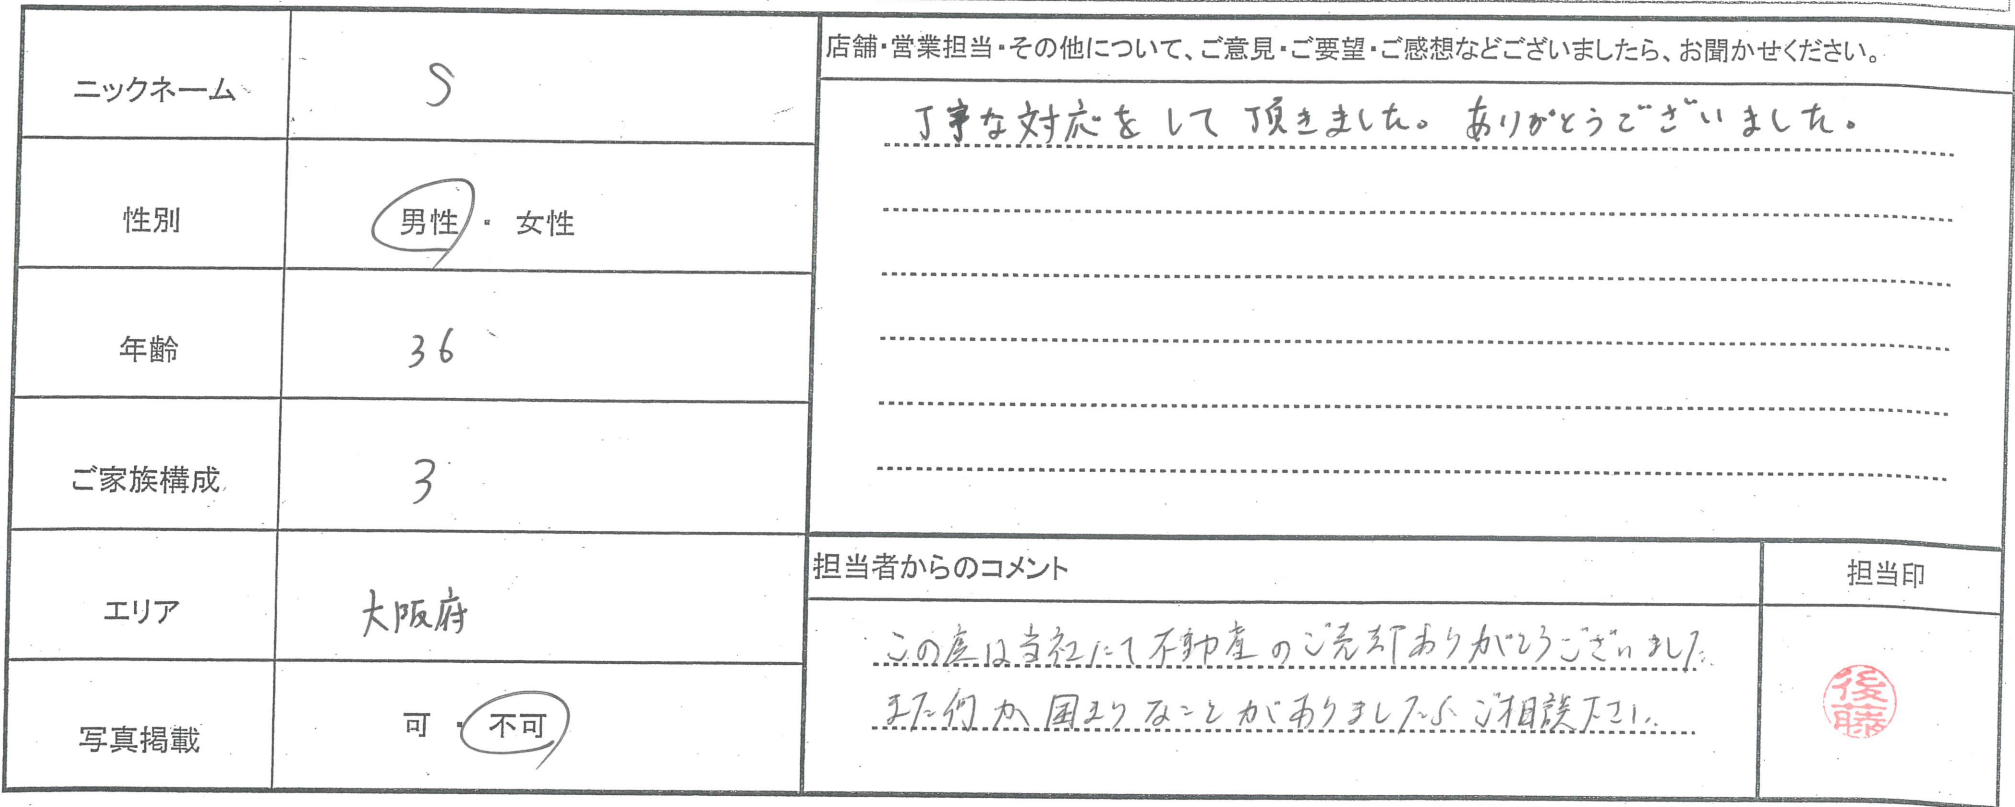 ニックネーム S
性別 男性・女性
年齢 36
ご家族構成 3
エリア 大阪府
写真掲載 可・不可
店舗・営業担当・その他について、ご意見・ご要望・ご感想などございましたら、お聞かせください。
丁寧な対応をして頂きました。ありがとうございました。
担当者からのコメント
この度は当社にて不動産のご売却ありがとうございました
また何か困りなことがありましたらご相談下さい。
担当印
後藤